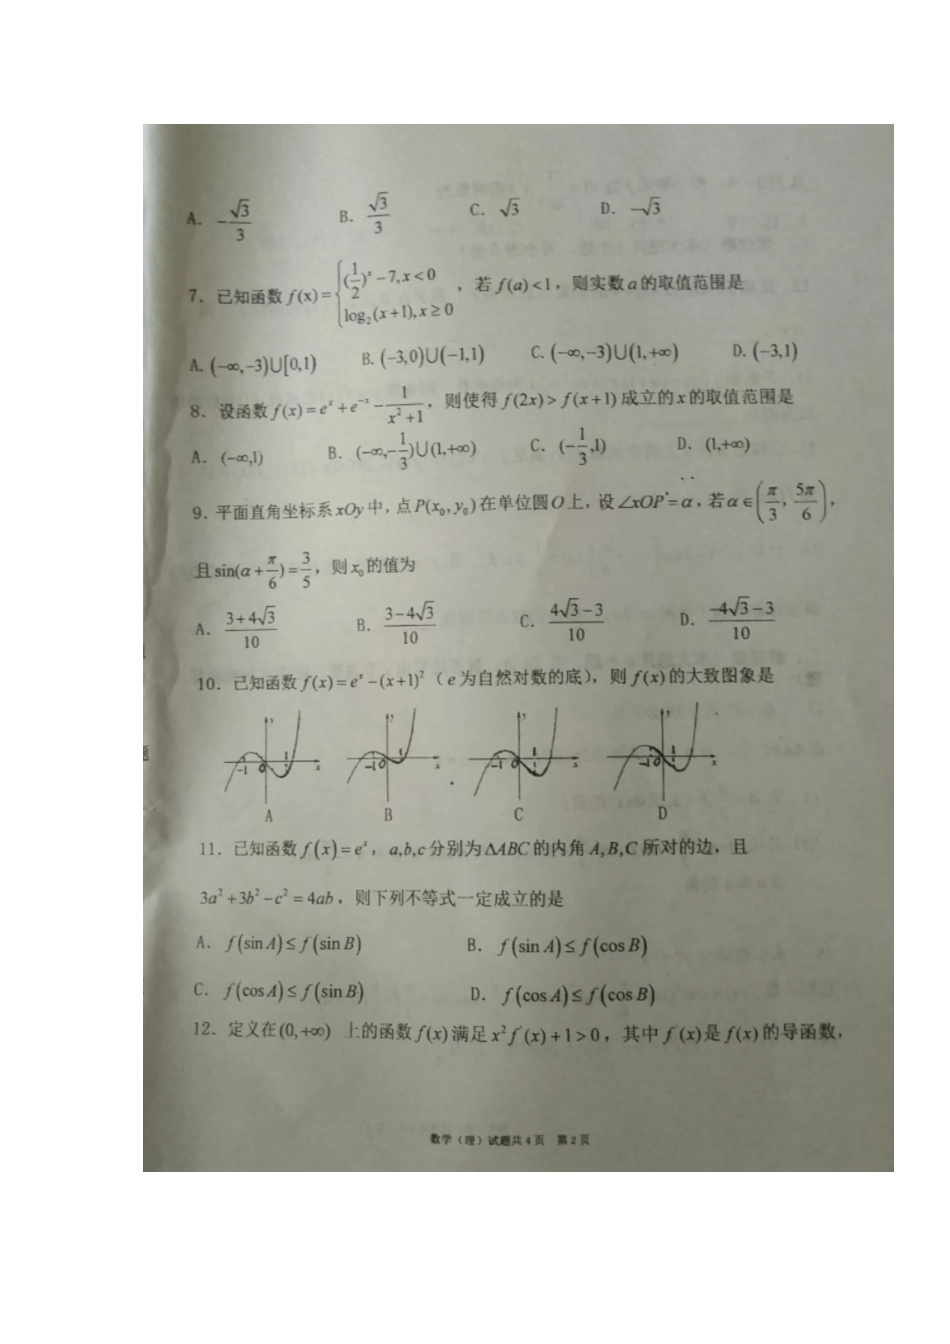 A. -√3/3 B. √3/3 C. √3 D. -√3
7. 已知函数 f(x)={(1/2)^x-7,x<0 log₂(x+1),x≥0 , 若 f(a)<1, 则实数a的取值范围是
A. (-∞,-3)∪[0,1) B. (-3,0)∪(-1,1) C. (-∞,-3)∪(1,+∞) D. (-3,1)
8. 设函数 f(x)=e^x+e^-x-1/(x²+1), 则使得 f(2x)>f(x+1) 成立的x的取值范围是
A. (-∞,1) B. (-∞,-1/3)∪(1,+∞) C. (-1/3,1) D. (1,+∞)
9. 平面直角坐标系xOy中, 点P(x₀,y₀)在单位圆O上, 设∠xOP=α, 若α∈(π/3,5π/6),
且sin(α+π/6)=3/5, 则x₀的值为
A. (3+4√3)/10 B. (3-4√3)/10 C. (4√3-3)/10 D. (-4√3-3)/10
10. 已知函数 f(x)=e^x-(x+1)² (e为自然对数的底), 则 f(x)的大致图象是
y -1 O 1 x y -1 O 1 x y -1 O 1 x y -1 O 1 x
A B C D
11. 已知函数 f(x)=e^x, a,b,c分别为△ABC的内角A,B,C所对的边, 且
3a²+3b²-c²=4ab, 则下列不等式一定成立的是
A. f(sin A)≤f(sin B) B. f(sin A)≤f(cos B)
C. f(cos A)≤f(sin B) D. f(cos A)≤f(cos B)
12. 定义在(0,+∞) 上的函数 f(x)满足x²f′(x)+1>0, 其中 f′(x)是f(x)的导函数,
数学(理)试题共4页 第2页